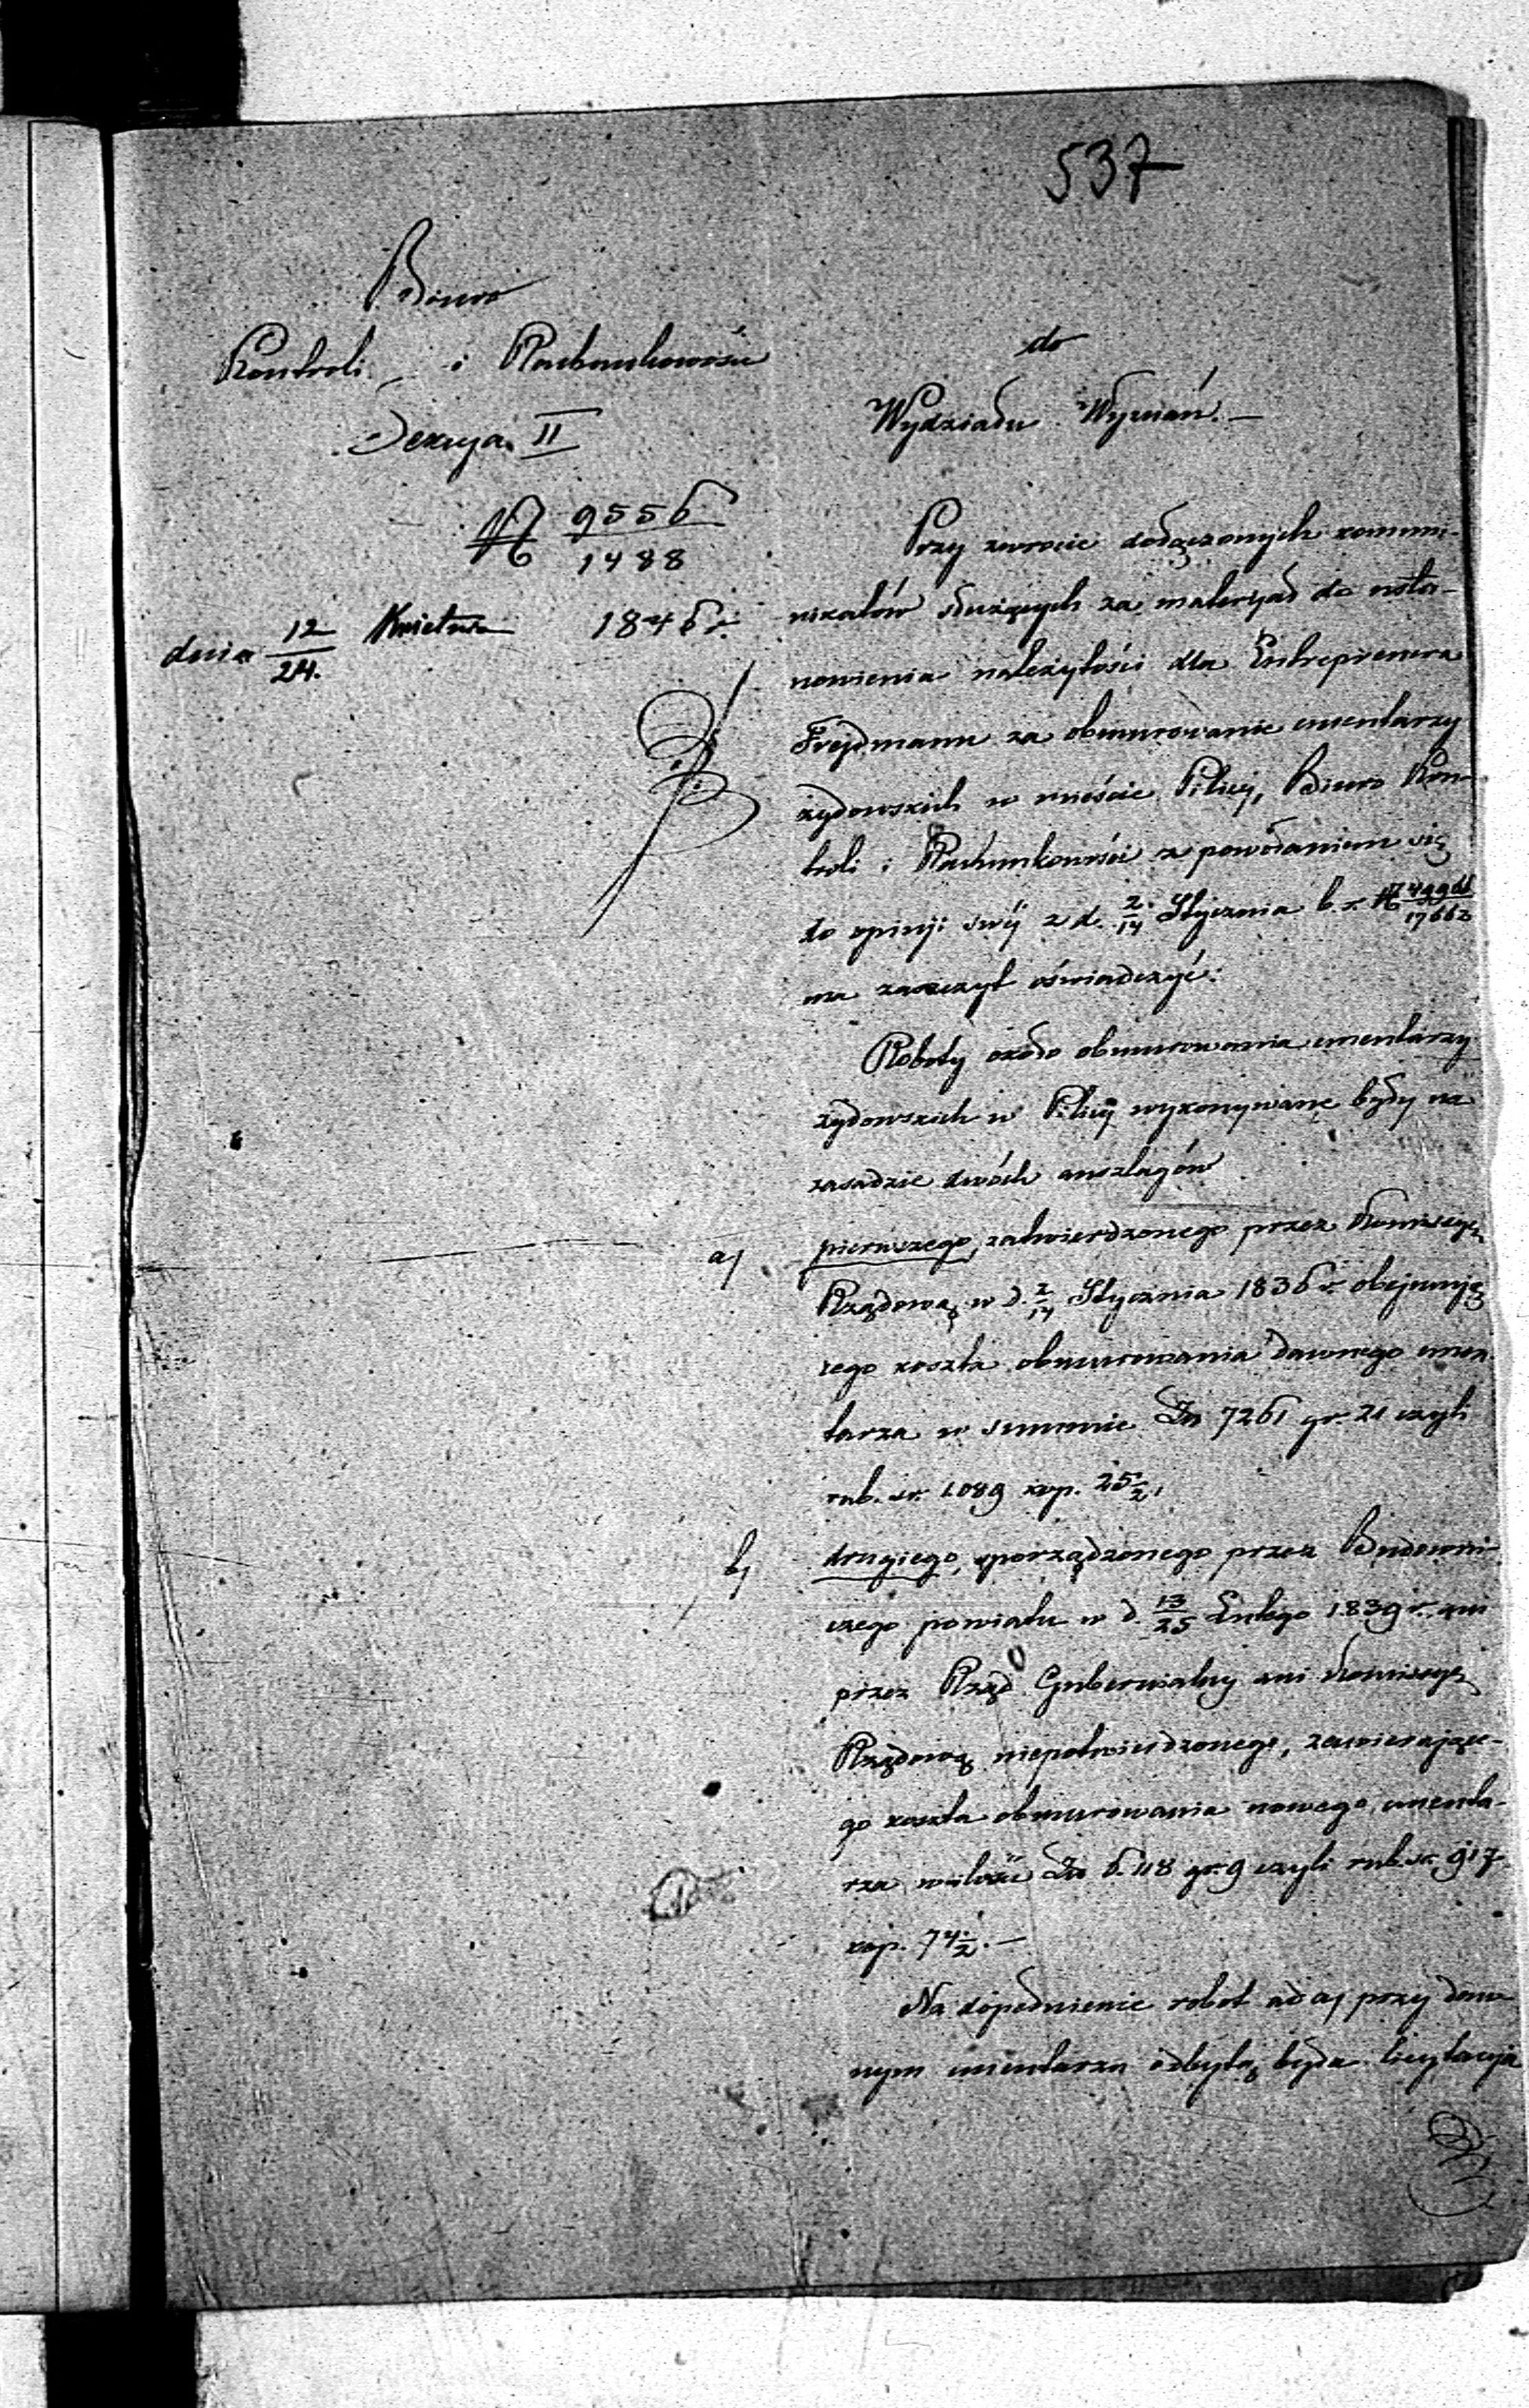 537
Biuro
Kontroli i Rachunkowości
Sekcyja II
№ 9556/1488
dnia 12/24 Kwietnia 1846 r.
do
Wydziału Wyznań. —
Przy zwrocie dołączonych kommu-
nikatów służących za materyał do usta-
nowienia należytości dla Entreprenera
Frejdmann za obmurowanie cmentarzy
żydowskich w mieście Pilicy, Biuro Kon-
troli i Rachunkowości z powołaniem się
do opinji swéj z d. 2/14 Stycznia b. r. №
ma zaszczyt oświadczyć:
Roboty około obmurowania cmentarzy
żydowskich w Pilicy wykonywane były na
zasadzie dwóch anszlagów
a) pierwszego, zatwierdzonego przez Kommissyę
Rządową w d. 2/14 Stycznia 1836 r. obejmują
cego koszta obmurowania dawnego cmen
tarza w summie Zł 7261 gr. 21 czyli
rub. sr. 1089 kop. 25 1/2,
b) drugiego, sporządzonego przez Budowni
czego powiatu w d. 13/25 Lutego 1839 r. ani
przez Rząd Gubernialny ani Kommissyę
Rządową niepotwierdzonego, zawierające-
go koszta obmurowania nowego cmenta-
rza w ilości Zł 6118 gr. 9 czyli rub. sr. 917
kop. 74 1/2. —
Na dopełnienie robot ad a) przy daw
nym cmentarzu odbytą była licytacyja